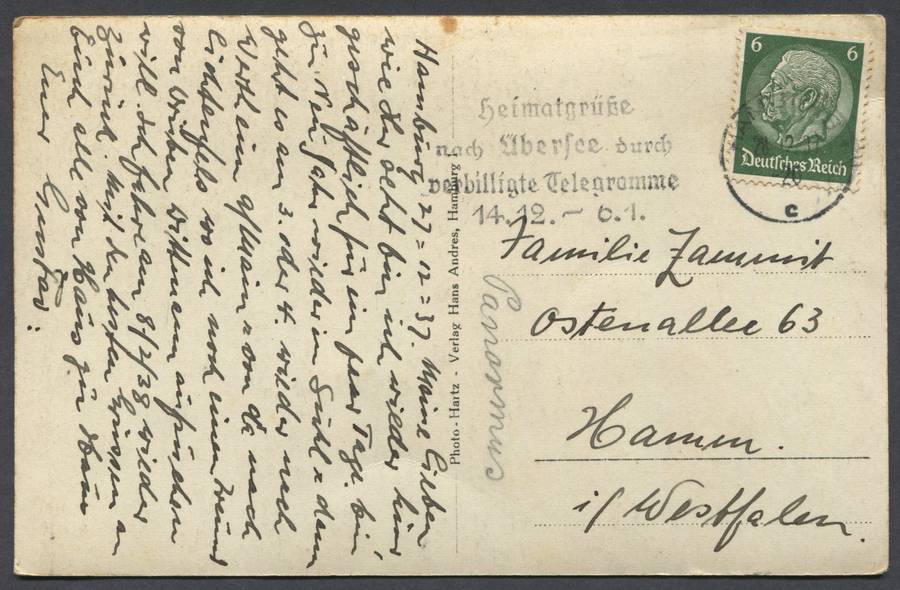 Hamburg 27=12=37. Meine Lieben
wie Ihr seht bin ich wieder hier
geschäftlich für ein paar Tage. bin
zu Neu Jahr wieder in Suhl = dann
geht es am 3. oder 4. wieder nach
Wertheim a/Main = von da nach
Lichtenfels wo ich noch einen Freund
von drüben aufsuchen
will. Ich fahre am 8/2/38 wieder
zurück. Mit den besten Grüssen an
Euch alle von Haus zu Haus
Euer Gustav.
Photo-Hartz - Verlag Hans Andres, Hamburg 1
Panormus
Heimatgrüße
nach Übersee durch
verbilligte Telegramme
14.12.- 6.1.
6 6
Deutsches Reich
c
Familie Zammit
Ostenallee 63
Hamm.
i/ Westfalen.